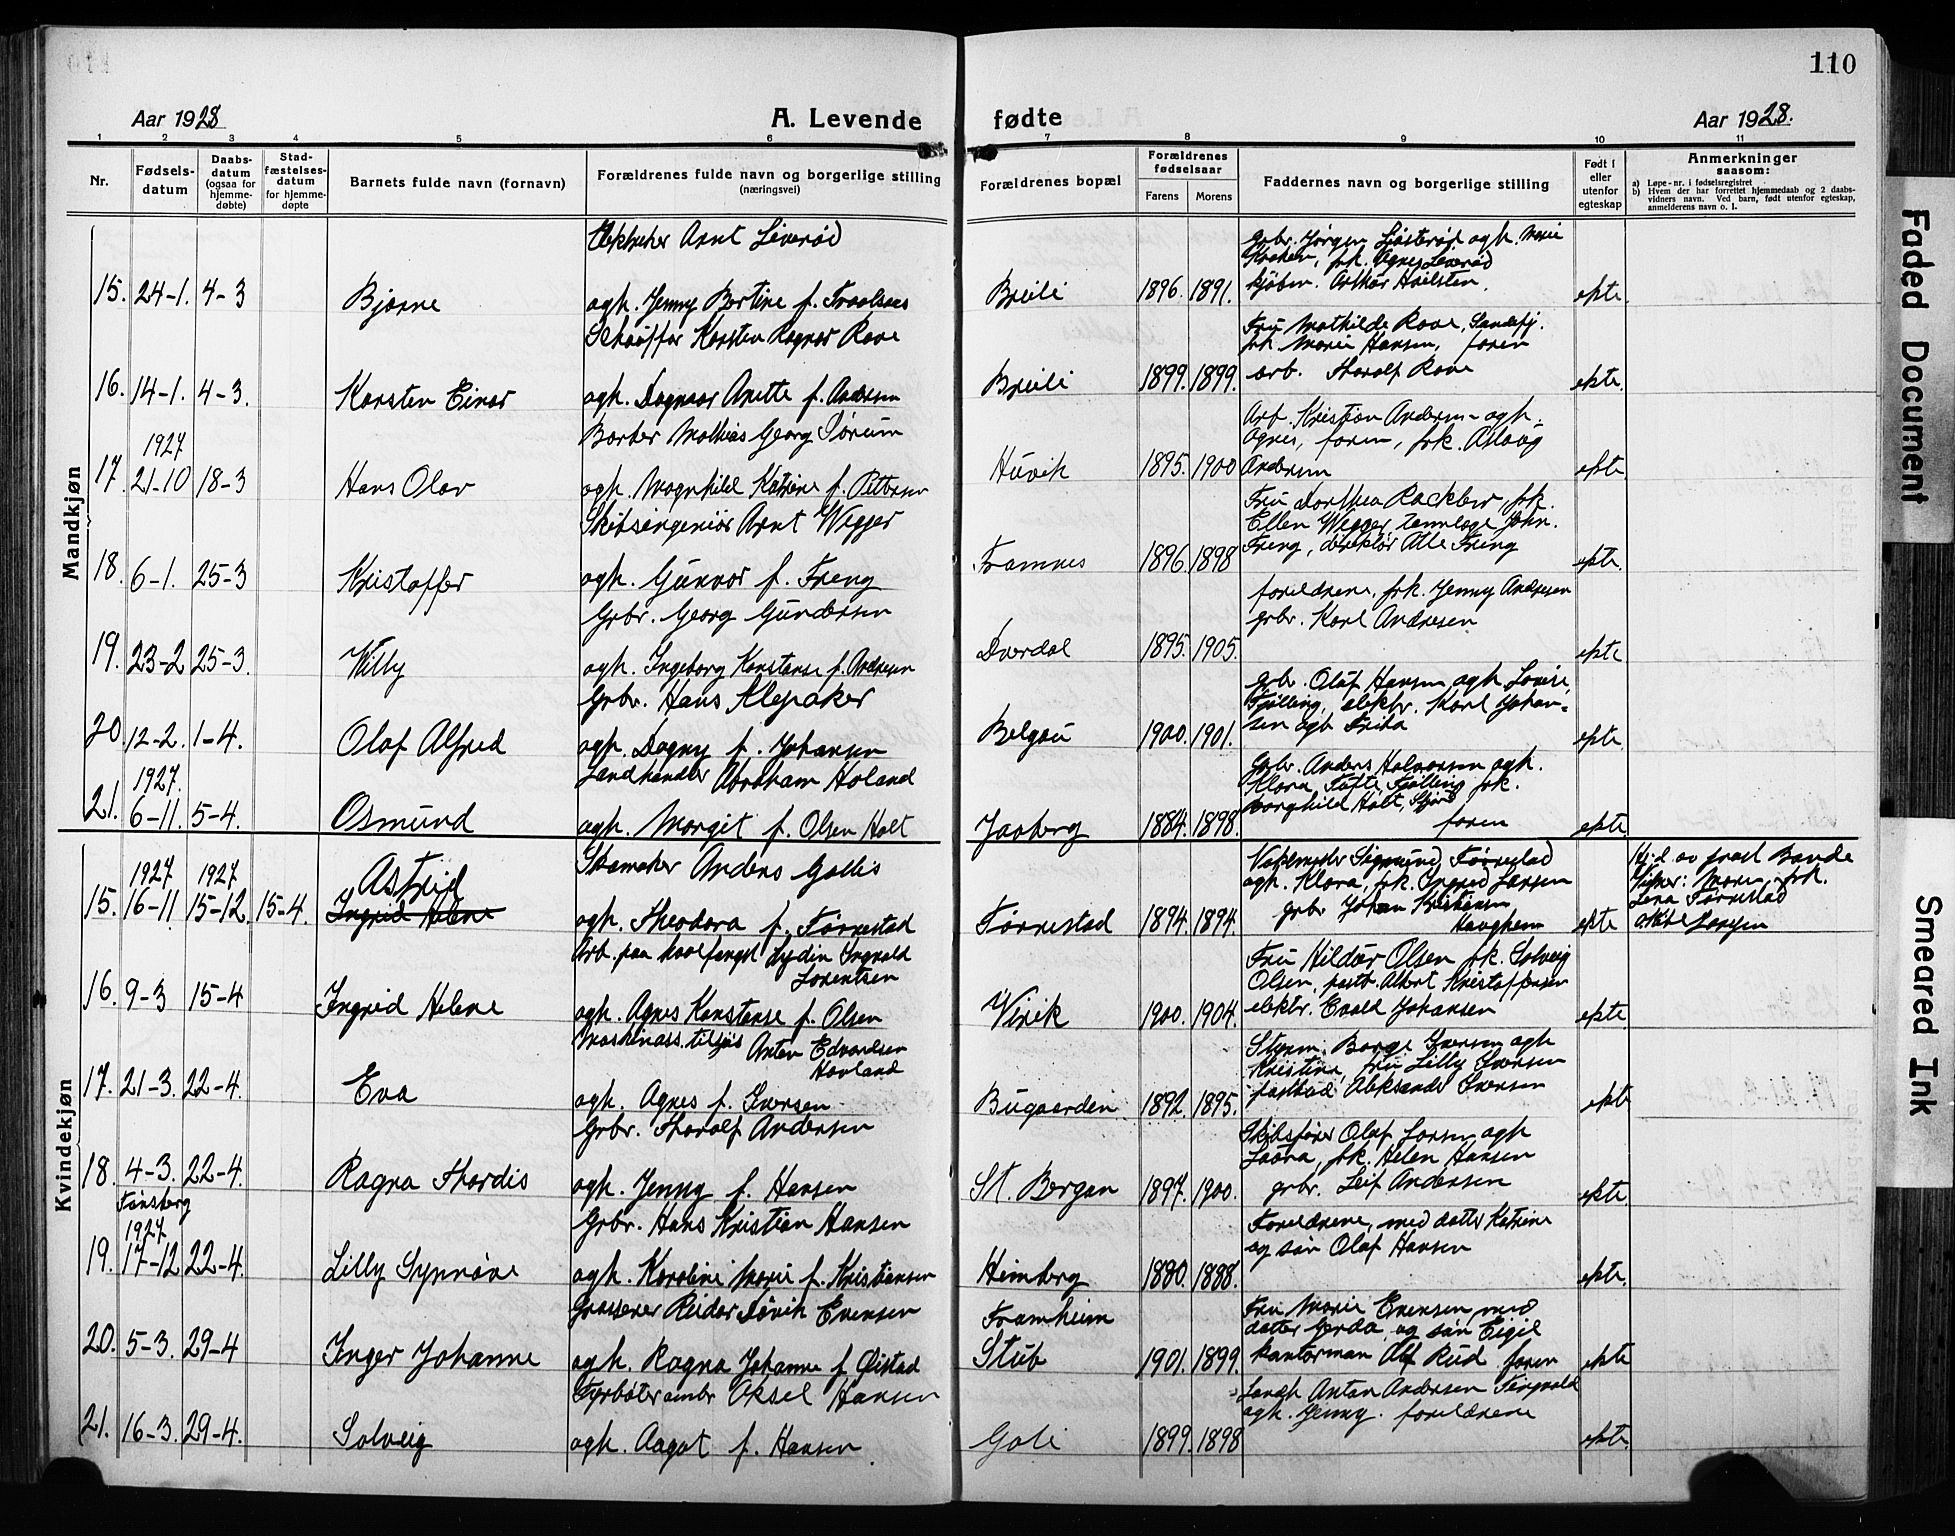 110
Aar 1928
A. Levende
fødte
Aar 1928.
1 2 3 4 5 6 7 8 9 10 11
Nr.
Fødsels-
datum
Daabs-
datum
(ogsaa for
hjemme-
døbte)
Stad-
fæstelses-
datum
for hjemme-
døpte
Barnets fulde navn (fornavn)
Forældrenes fulde navn og borgerlige stilling
(næringsvei)
Forældrenes bopæl
Forældrenes
fødselsaar
Farens
Morens
Faddernes navn og borgerlige stilling
Født i
eller
utenfor
egteskap
Anmerkninger
saasom:
a) Løpe-nr. i fødselsregistret
b) Hvem der har forrettet hjemmedaab og 2 daabs-
vidners navn. Ved barn, født utenfor egteskap,
anmelderens navn o. l.
Mandkjøn
15. 24-1. 4-3 Bjarne
Arnt Liverød
ogh. Jenny Bertine f.
Breili 1896. 1891.
Grbr. Jørgen ogh. Marie
frk. Agnes Liverød
Arthur
ekte
16. 14-1. 4-3. Karsten Einar
Karsten Ragnar Rove
ogh. Dagmar Anette f. Andersen
Breili 1899. 1899.
Fru Mathilde Rove, Sandefj.
frk. Marie Hansen, faren
arb. Thoralf Rove
ekte.
17. 1927 21-10 18-3 Hans Olav
Barber Mathias Georg Sørum
ogh. Magnhild Katrine f. Pettersen
Huvik 1895. 1900
Arb. Kristian Andersen ogh.
Agnes, faren, frk. Aslaug
Andersen
ekte
18. 6-1. 25-3 Kristoffer
Skibsingeniør Arnt Wegger
ogh. Gunvor f. Freng
Framnes 1896. 1898
Fru Dorthea frk.
Ellen Wegger, tannlæge John.
Freng, direktør Atle Freng
ekte.
19. 23-2 25-3. Willy
Grbr. Georg Gundersen
ogh. Ingeborg Konstanse f. Andresen
Dverdal 1895. 1905.
foreldrene, frk. Jenny Andresen
grbr. Karl Andresen
ekte
20. 12-2. 1-4. Olaf Alfred
Grbr. Hans Klepaker
ogh. Dagny f. Johansen
Belgau 1900. 1901.
grb. Olaf Hansen ogh. Lovise,
Fjølling, elektr. Karl Johan-
sen ogh Frida
ekte.
21. 1927. 6-11. 5-4. Osmund
Landhandler Abraham Holand
ogh. Margit f. Olsen Holt
Jaaberg 1884. 1898.
Grbr. Anders Halvorsen ogh.
Klara, Tufte, Fjølling frk.
Borghild Holt,
faren
ekte.
Kvindekjøn
15. 1927 16-11 1927 15-12 15-4. Astrid
Ingrid Helene
Skomaker Anders Gallis
ogh. Theodora f. Førrestad
Førrestad 1894. 1894.
Sigmund Førrestad
ogh. Klara, frk. Ingrid Larsen
grbr Johan Kristiansen
Haughem
ekte
Hj.d av prost Bonde
Vitner: Moren, frk.
Lena Førrestad
16. 9-3 15-4 Ingrid Helene
Arb. paa hvalfangst Lydin Ingvald
Lorentsen
ogh. Agnes Konstanse f. Olsen
Virik 1900. 1904.
Fru Hildur Olsen frk. Solveig
Olsen, Albert Kristoffersen
elektr. Evald Johansen
ekte
17. 21-3. 22-4. Eva
Anton Edvardsen
Hovland
ogh. Agnes f. Iversen
Bugaarden 1892. 1895.
Styrm. Borge Iversen ogh
Kristina, fru Lilly Iversen
Aleksander Iversen
ekte
18. 4-3. 22-4. Ragna Thordis
Tønsberg
Grbr. Thoralf Andersen
ogh. Jenny f. Hansen
St. Bergan 1897. 1900.
Skibsfører Olaf Larsen ogh
Laura, frk. Helen Hansen
grbr. Leif Andersen
ekte.
19. 1927 17-12 22-4. Lilly Synnøve
Grbr. Hans Kristian Hansen
ogh. Karoline Marie f. Kristiansen
Himberg 1880. 1888.
Foreldrene, med datter Katrine
og søn Olaf Hansen
ekte.
20. 5-3. 29-4 Inger Johanne
Grosserer Reidar Løvik Evensen
ogh. Ragna Johanne f. Ølstad
Framheim
Stub 1901. 1899.
Fru Marie Evensen, med
datter Gerda, og søn Eigil
kontorman Alf Rud, faren
ekte
21. 16-3. 29-4. Solveig
Aksel Hansen
ogh. Aagot f. Hansen
Goli 1899. 1898
Anton Andersen
ogh. Jenny. foreldrene
ekte.
Faded Document
Smeared Ink